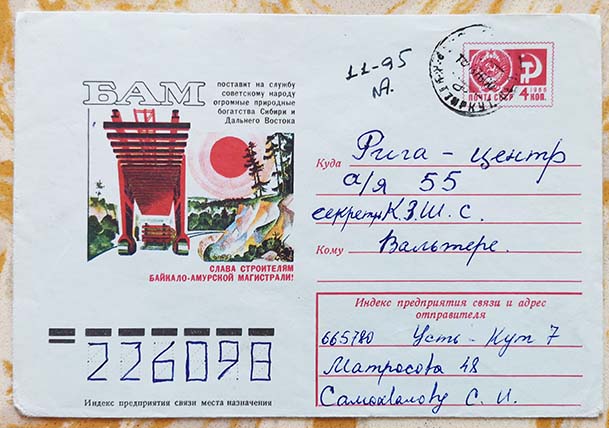 11-95
БАМ
поставит на службу
советскому народу
огромные природные
богатства Сибири и
Дальнего Востока
СЛАВА СТРОИТЕЛЯМ
БАЙКАЛО-АМУРСКОЙ МАГИСТРАЛИ!
ПОЧТА СССР 4 КОП.
Куда Рига - центр
а/я 55
секретн К.З.Ш.С.
Кому Вальтере.
Индекс предприятия связи и адрес
отправителя
665780 Усть-Кут 7
Матросова 48
Самохвалову С. И.
226098
Индекс предприятия связи места назначения